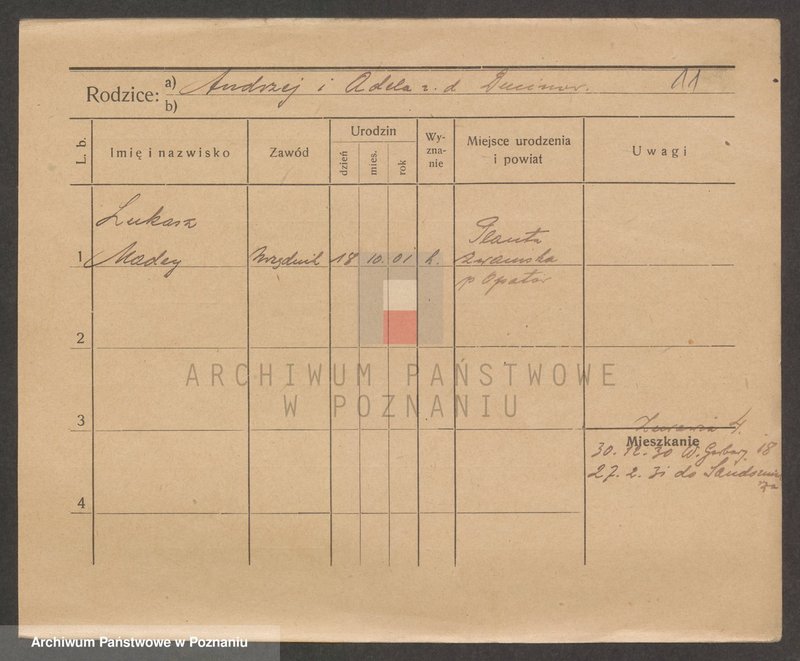 Rodzice: a) Andrzej i Adela z. d 11
b)
L. b.
Imię i nazwisko
Zawód
Urodzin
dzień
mies.
rok
Wy-
zna-
nie
Miejsce urodzenia
i powiat
Uwagi
Łukasz
1 Madey Urzędnik 18 10. 01
p Opatow
2
3
4
Mieszkanie
30. 12. 30 W. Garbary 18
27. 2. 31 do Sandomie
rza
ARCHIWUM PAŃSTWOWE
W POZNANIU
Archiwum Państwowe w Poznaniu